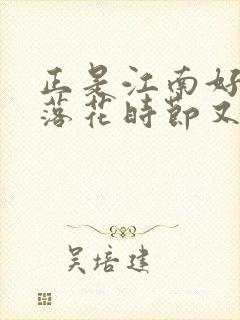 正是江南好
落花时节又
吴培建